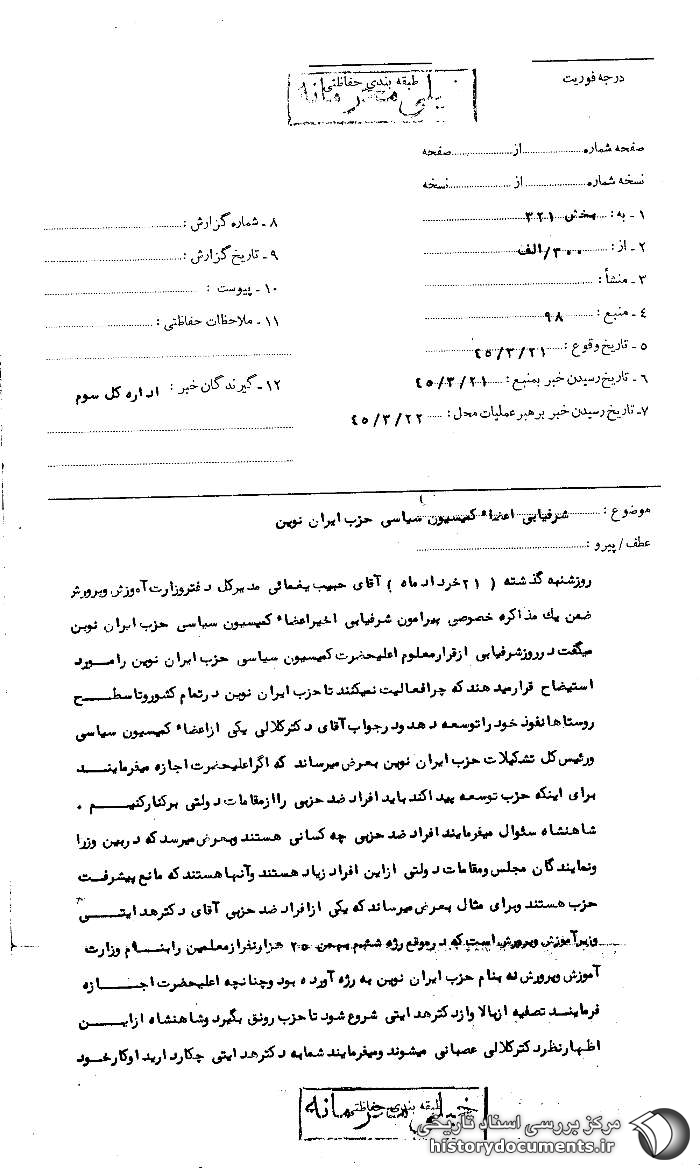 درجه فوریت
طبقه بندی حفاظتی
خیلی محرمانه
صفحه شماره ............ از ............ صفحه
نسخه شماره ............ از ............ نسخه
۱ - به : بخش ۳۲۱
۲ - از : ۳۰۰/الف
۳ - منشأ :
۴ - منبع : ۹۸
۵ - تاریخ وقوع : ۴۵/۳/۲۱
۶ - تاریخ رسیدن خبر بمنبع : ۴۵/۳/۲۱
۷- تاریخ رسیدن خبر برهبر عملیات محل : ۴۵/۳/۲۲
۸ - شماره گزارش :
۹ - تاریخ گزارش :
۱۰ - پیوست :
۱۱ - ملاحظات حفاظتی :
۱۲- گیرندگان خبر : اداره کل سوم
موضوع : شرفیابی اعضاء کمیسیون سیاسی حزب ایران نوین
عطف / پیرو :
روزشنبه گذشته ( ۲۱ خرداد ماه ) آقای حبیب یغمائی مدیرکل دفتر وزارت آموزش وپرورش
ضمن یك مذاکره خصوصی پیرامون شرفیابی اخیر اعضاء کمیسیون سیاسی حزب ایران نوین
میگفت در روز شرفیابی از قرار معلوم اعلیحضرت کمیسیون سیاسی حزب ایران نوین را مـورد
استیضاح قرار میدهند که چرا فعالیت نمیکنند تا حزب ایران نوین در تمام کشور و تا سطـــح
روستاها نفوذ خود را توسعه دهد و در جواب آقای دکتر کلالی یکی از اعضاء کمیسیون سیاسی
و رئیس کل تشکیلات حزب ایران نوین بعرض میرساند که اگر اعلیحضرت اجازه میفرماینــد
برای اینکه حزب توسعه پیدا کند باید افراد ضد حزبی را از مقامات دولتی برکنار کنیــم .
شاهنشاه سئوال میفرمایند افراد ضد حزبی چه کسانی هستند وبعرض میرسد که در بین وزرا
ونمایندگان مجلس ومقامات دولتی از این افراد زیاد هستند وآنها هستند که مانع پیشرفت
حزب هستند وبرای مثال بعرض میرساند که یکی از افراد ضد حزبی آقای دکتر هدایتــی
وزیر آموزش وپرورش است که در موقع رژه ششم بهمن ۲۵ هزار نفر از معلمین را بنــام وزارت
آموزش وپرورش نه بنام حزب ایران نوین به رژه آورده بود وچنانچه اعلیحضرت اجـــازه
فرماینـد تصفیه از بالا و از دکتر هدایتی شروع شود تا حزب رونق بگیرد وشاهنشاه از ایــن
اظهار نظر دکتر کلالی عصبانی میشوند ومیفرمایند شما به دکتر هدایتی چکار دارید او کار خـود
طبقه بندی حفاظتی
خیلی محرمانه
مرکز بررسی اسناد تاریخی
historydocuments.ir